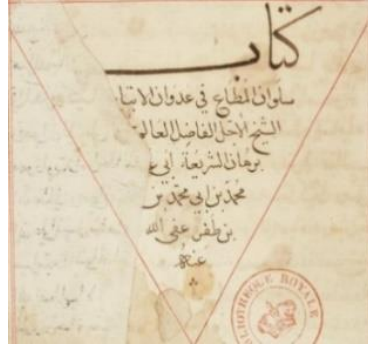 كتاب
سلوان المطاع في عدوان الاتبا
الشيخ الاجل الفاضل العالم
برهان الشريعة ابي
محمد بن ابي محمد بن
بن ظفر عفى الله
عنه
BIBLIOTHEQUE ROYALE